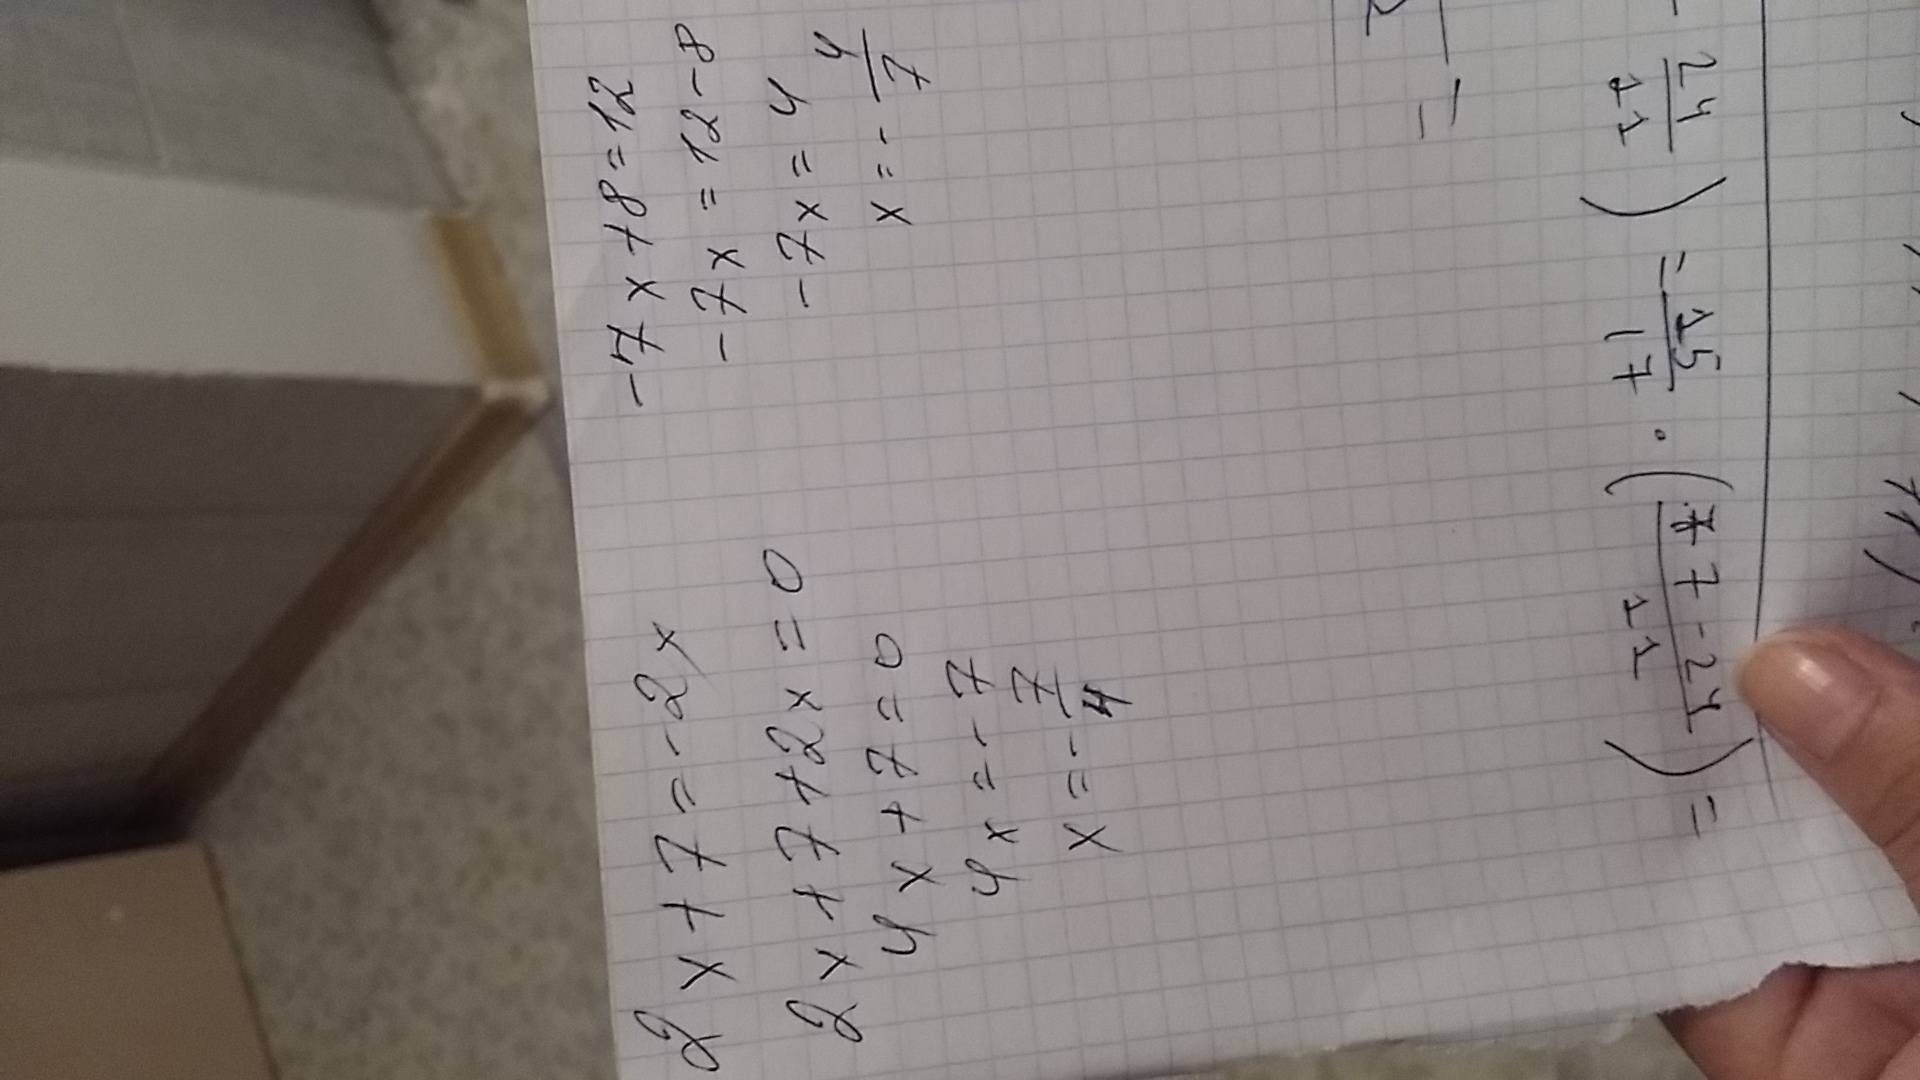 2x+7=-2x
2x+7+2x=0
4x+7=0
4x=-7
x=-7/4
-7x+8=12
-7x=12-8
-7x=4
x=-4/7
24/11) = 15/17 · (7-24/11) =
=